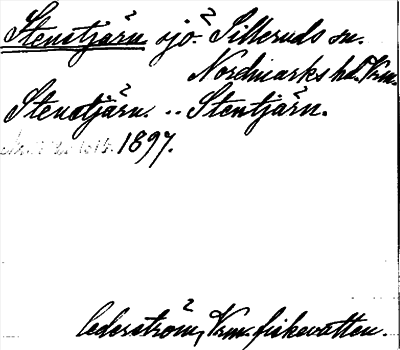 Stenstjärn sjö. Silleruds sn.
Nordmarks hd. Vrm.
Stenstjärn. .. Stentjärn.
1897.
Cederström, Vrm. fiskevatten.